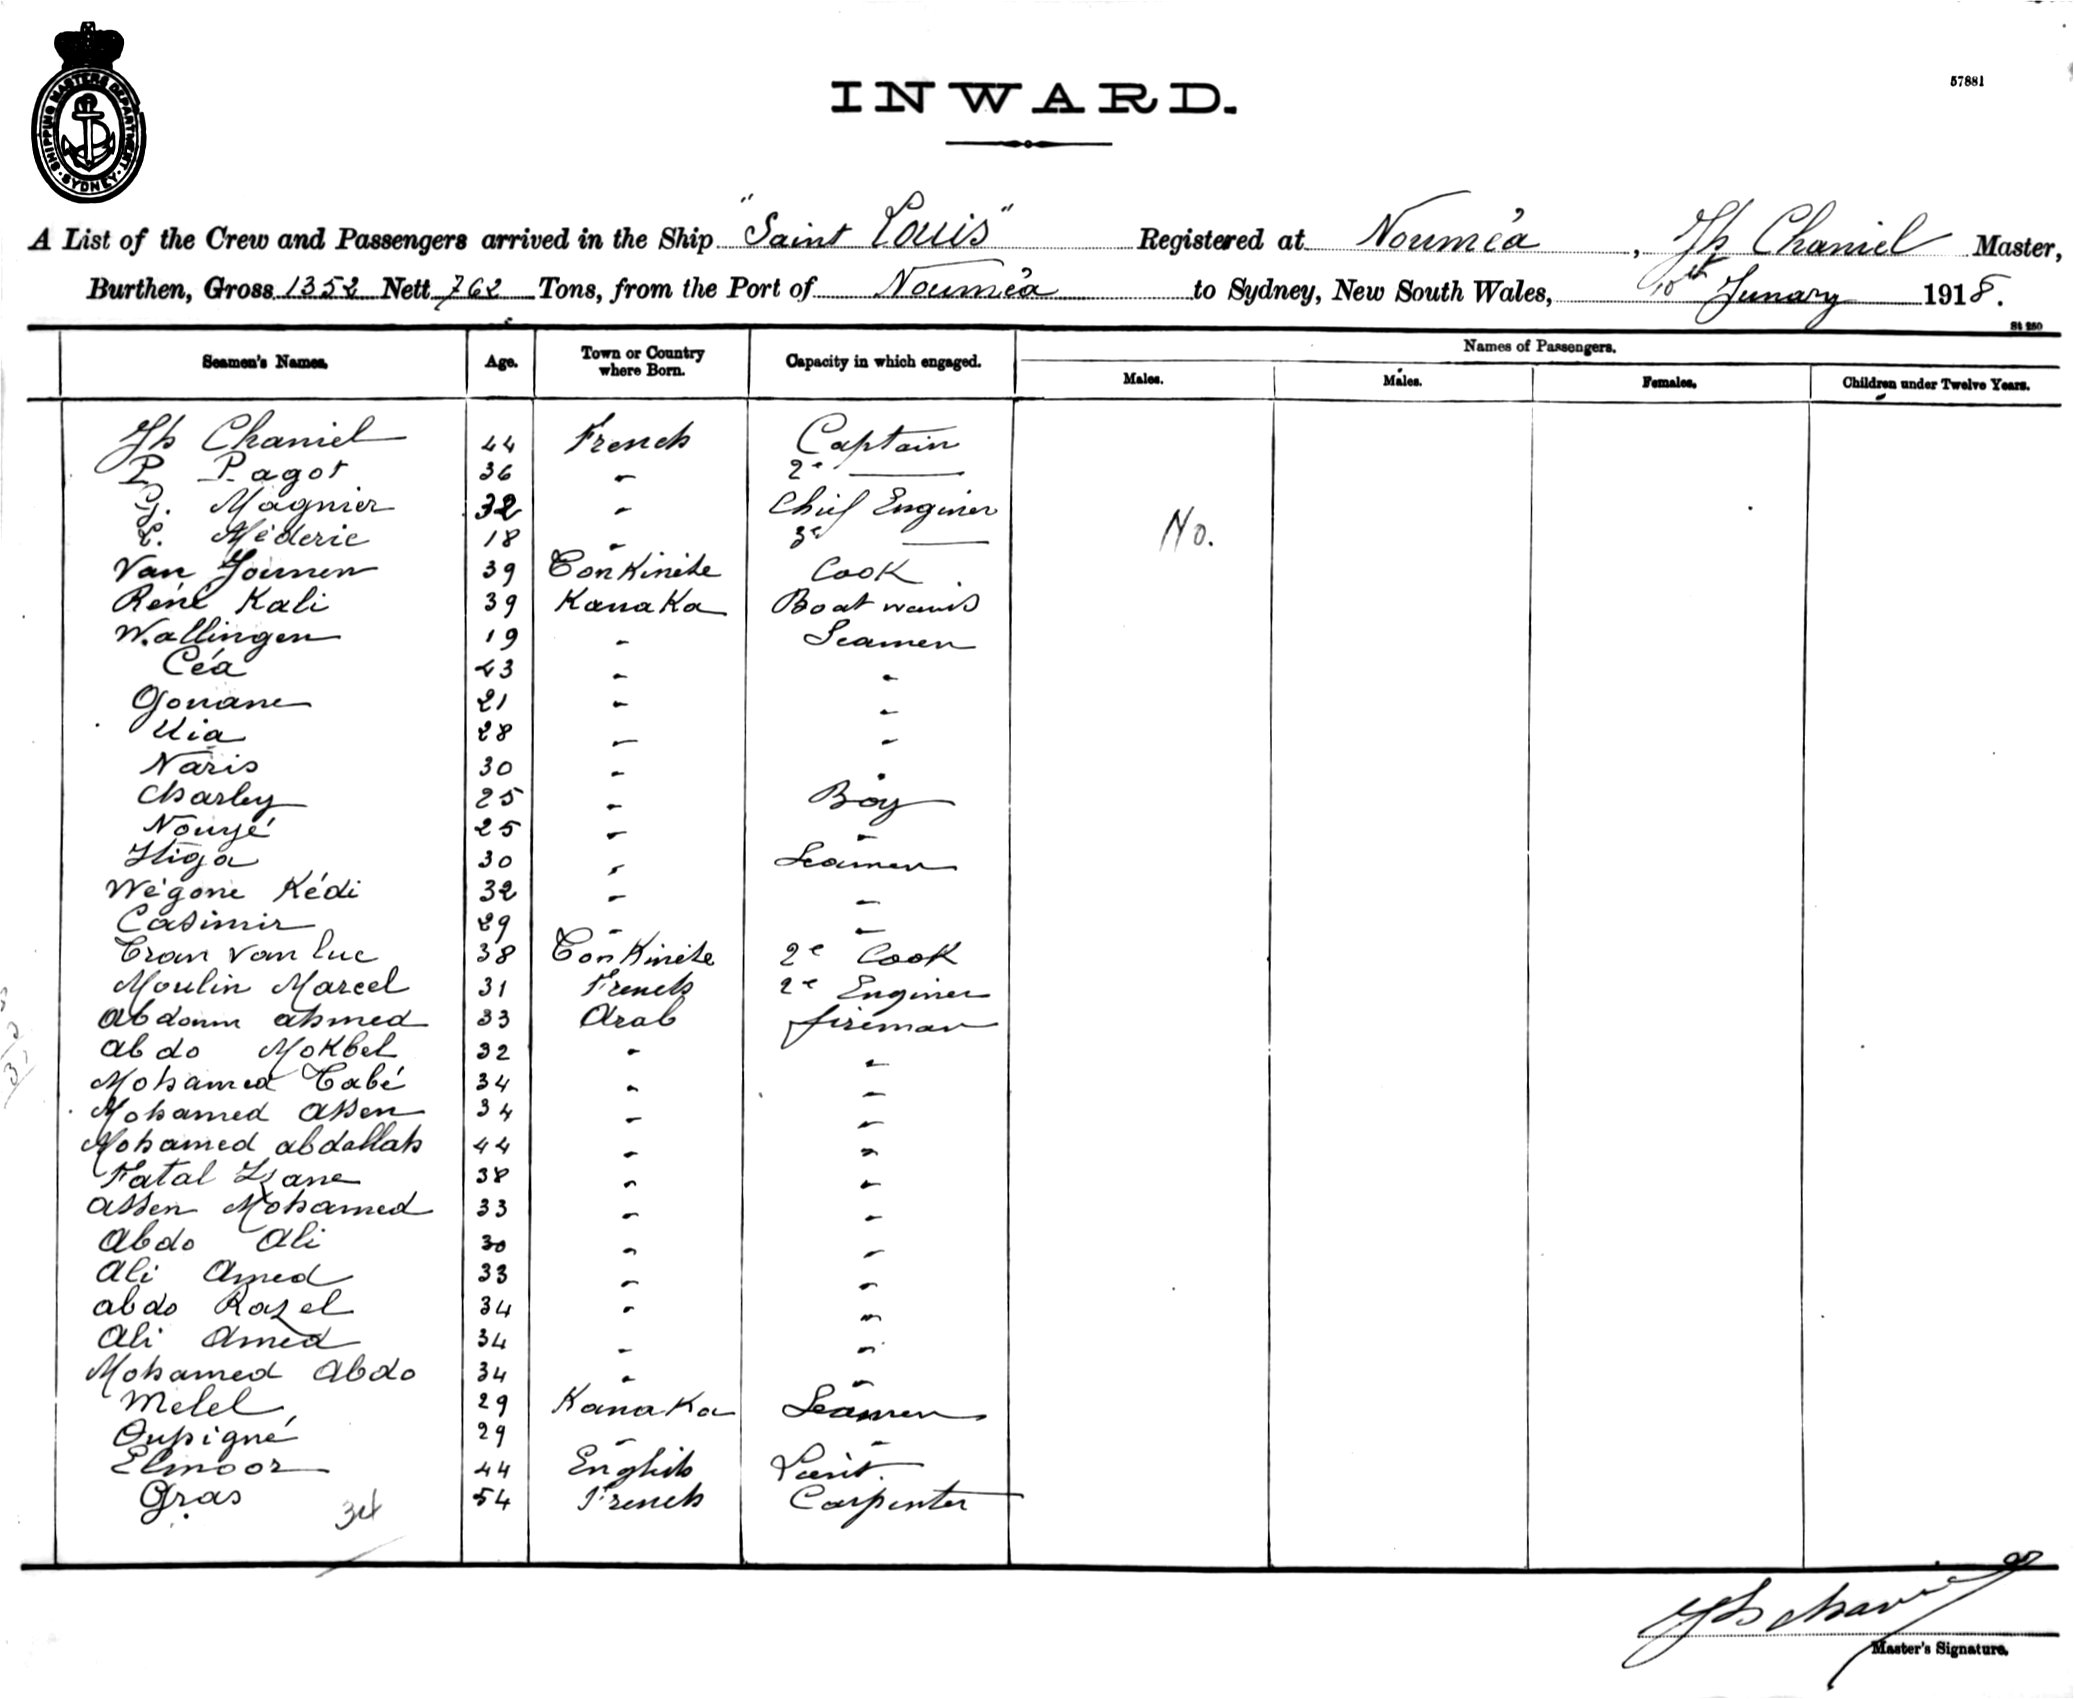 SHIPPING MASTERS DEPARTMENT. SYDNEY.
57881
INWARD.
A List of the Crew and Passengers arrived in the Ship "Saint Louis" Registered at Nouméa, Jh Chaniel Master,
Burthen, Gross 1352 Nett 762 Tons, from the Port of Nouméa to Sydney, New South Wales, 10th Junary 1918.
St 250
Seamen's Names. Age. Town or Country where Born. Capacity in which engaged. Names of Passengers.
Males. Males. Females. Children under Twelve Years.
Jh Chaniel 44 French Captain
P Pagot 36 " 2e ———
G. Magnier 32 " Chief Enginer
L. Méderic 18 " 3e ———
No.
Van 39 Tonkinese Cook
René Kali 39 Kanaka
Wallingen 19 " Seamen
Céa 23 " "
Gouane 21 " "
Kia 28 " "
Naris 30 " "
Charley 25 " Boy
Nouyé 25 " "
Itiga 30 " Seamen
Wégone Kédi 32 " "
Casimir 29 " "
Tran van luc 38 Tonkinese 2e Cook
Moulin Marcel 31 French 2e Enginer
Abdoum ahmed 33 Arab fireman
abdo Mokbel 32 " "
Mohamed Tabé 34 " "
Mohamed assen 34 " "
Mohamed abdallah 44 " "
Fatal Zane 38 " "
assen Mohamed 33 " "
Abdo Ali 30 " "
Ali Amed 33 " "
abdo Razel 34 " "
Ali Amed 34 " "
Mohamed Abdo 34 " "
Melel 29 Kanaka Seamen
Oupigné 29 " "
Elmoor 44 English
Gras 54 French Carpenter
34
Jh Chaniel
Master's Signature.